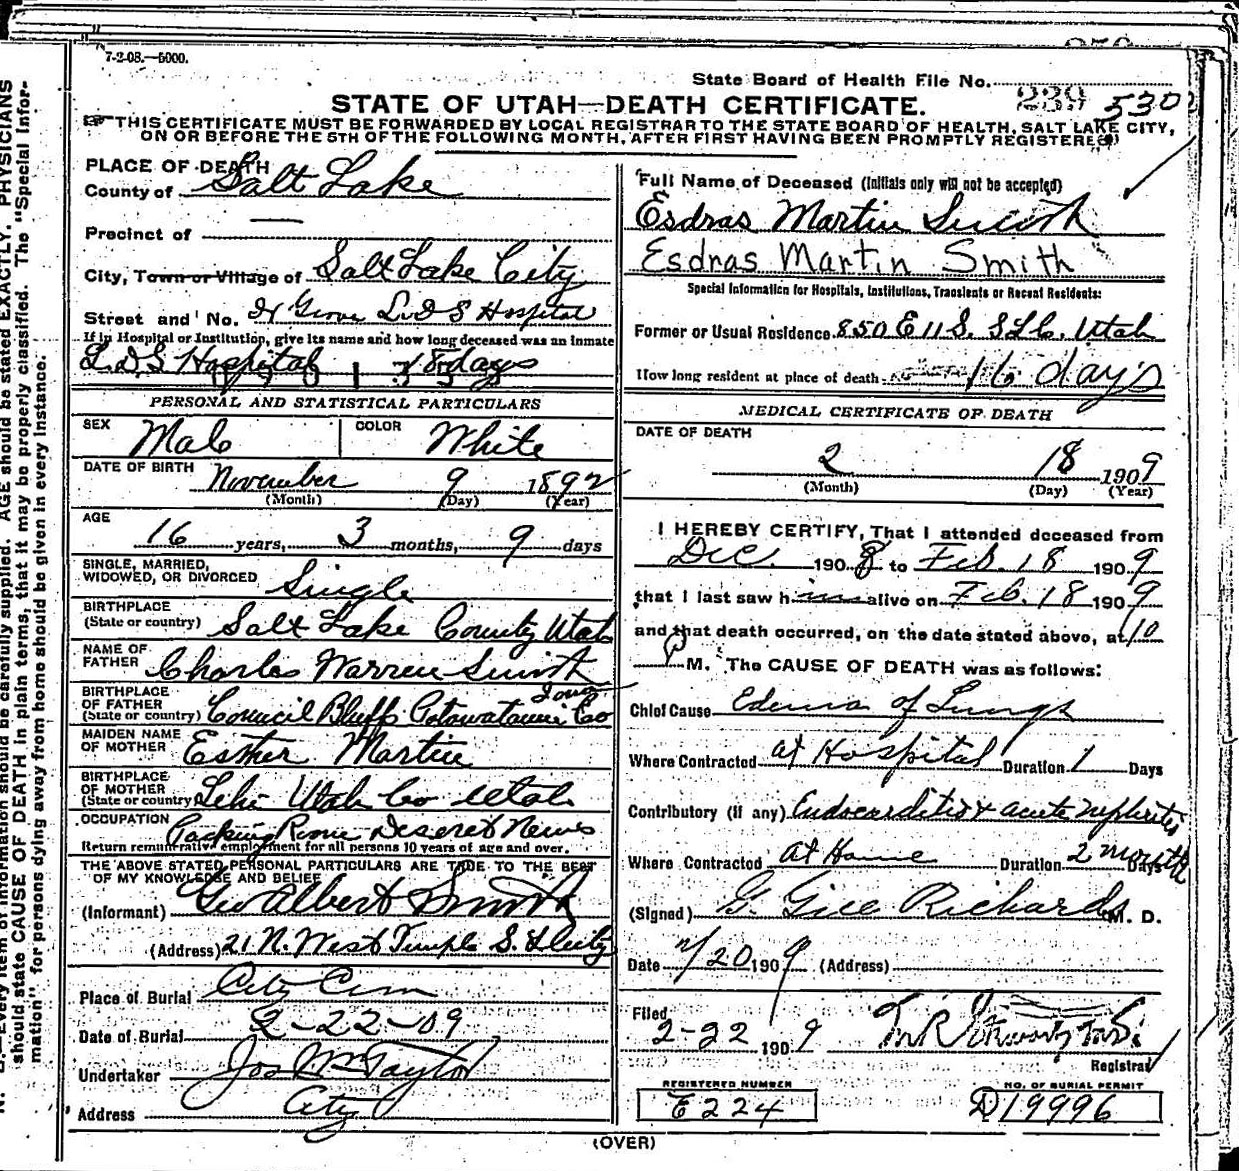 7-2-08.—5000.
State Board of Health File No. 239 530
STATE OF UTAH—DEATH CERTIFICATE.
THIS CERTIFICATE MUST BE FORWARDED BY LOCAL REGISTRAR TO THE STATE BOARD OF HEALTH, SALT LAKE CITY,
ON OR BEFORE THE 5TH OF THE FOLLOWING MONTH, AFTER FIRST HAVING BEEN PROMPTLY REGISTERED
PLACE OF DEATH
County of Salt Lake
Precinct of —
City, Town or Village of Salt Lake City
Street and No. Grove L.D.S Hospital
If in Hospital or Institution, give its name and how long deceased was an inmate
L.D.S Hospital days
PERSONAL AND STATISTICAL PARTICULARS
SEX Male COLOR White
DATE OF BIRTH November 9 1892
(Month) (Day) (Year)
AGE
16 years, 3 months, 9 days
SINGLE, MARRIED,
WIDOWED, OR DIVORCED Single
BIRTHPLACE
(State or country) Salt Lake County Utah
NAME OF
FATHER Charles Warren Smith
BIRTHPLACE
OF FATHER Iowa
(State or country) Council Bluffs Potowatamie Co
MAIDEN NAME
OF MOTHER Esther Martin
BIRTHPLACE
OF MOTHER
(State or country) Lehi Utah Co Utah
OCCUPATION Packing Room Deseret News
Return remunerative employment for all persons 10 years of age and over.
THE ABOVE STATED PERSONAL PARTICULARS ARE TRUE TO THE BEST
OF MY KNOWLEDGE AND BELIEF
(Informant) Geo Albert Smith
(Address) 21 N. West Temple S. L City
Place of Burial City Cem
Date of Burial 2-22-09
Undertaker Jos Wm Taylor
Address City
Full Name of Deceased (Initials only will not be accepted)
Esdras Martin Smith
Esdras Martin Smith
Special Information for Hospitals, Institutions, Transients or Recent Residents:
Former or Usual Residence. 850 E 11 S. S L C. Utah
How long resident at place of death 16 days
MEDICAL CERTIFICATE OF DEATH
DATE OF DEATH
2 18 1909
(Month) (Day) (Year)
I HEREBY CERTIFY, That I attended deceased from
Dec. 1908 to Feb. 18 1909
that I last saw him alive on Feb. 18 1909
and that death occurred, on the date stated above, at 10
P M. The CAUSE OF DEATH was as follows:
Chief Cause Edema of Lungs
Where Contracted at Hospital Duration 1 Days
Contributory (if any) Endocarditis & acute nephritis
Where Contracted At Home Duration 2 months Days
(Signed) G. Gill Richards M. D.
Date 2/20 1909 (Address)
Filed
2-22 1909
Registrar
REGISTERED NUMBER
E224
NO. OF BURIAL PERMIT
D19996
(OVER)
N. B.—Every item of information should be carefully supplied. AGE should be stated EXACTLY. PHYSICIANS
should state CAUSE OF DEATH in plain terms, that it may be properly classified. The "Special Infor-
mation" for persons dying away from home should be given in every instance.